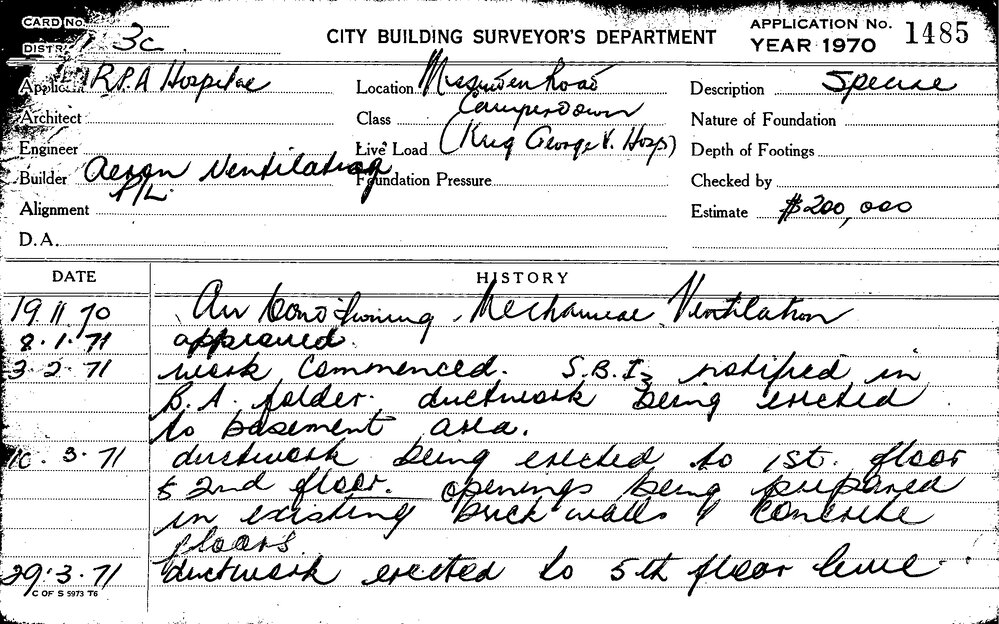 CARD No.
DISTR. 3c
CITY BUILDING SURVEYOR'S DEPARTMENT
APPLICATION No. 1485
YEAR 1970
Applicant R.P.A Hospital
Location Missenden Road
Camperdown
Description Special
Architect
Class
Nature of Foundation
Engineer
Live Load (King George V. Hosp)
Depth of Footings
Builder Aeron Ventilating
P/L
Foundation Pressure
Checked by
Alignment
Estimate $200,000
D.A.
DATE
HISTORY
19 11 70 Air Conditioning, Mechanical Ventilation
8.1.71 approved.
3.2.71 work commenced. S.B.I. notified in
B.A. folder. ductwork being erected
to basement area.
10.3.71 ductwork being erected to 1st. floor
& 2nd floor. openings being prepared
in existing brick walls & concrete
floors.
29.3.71 ductwork erected to 5th floor level.
C OF S 5973 T6